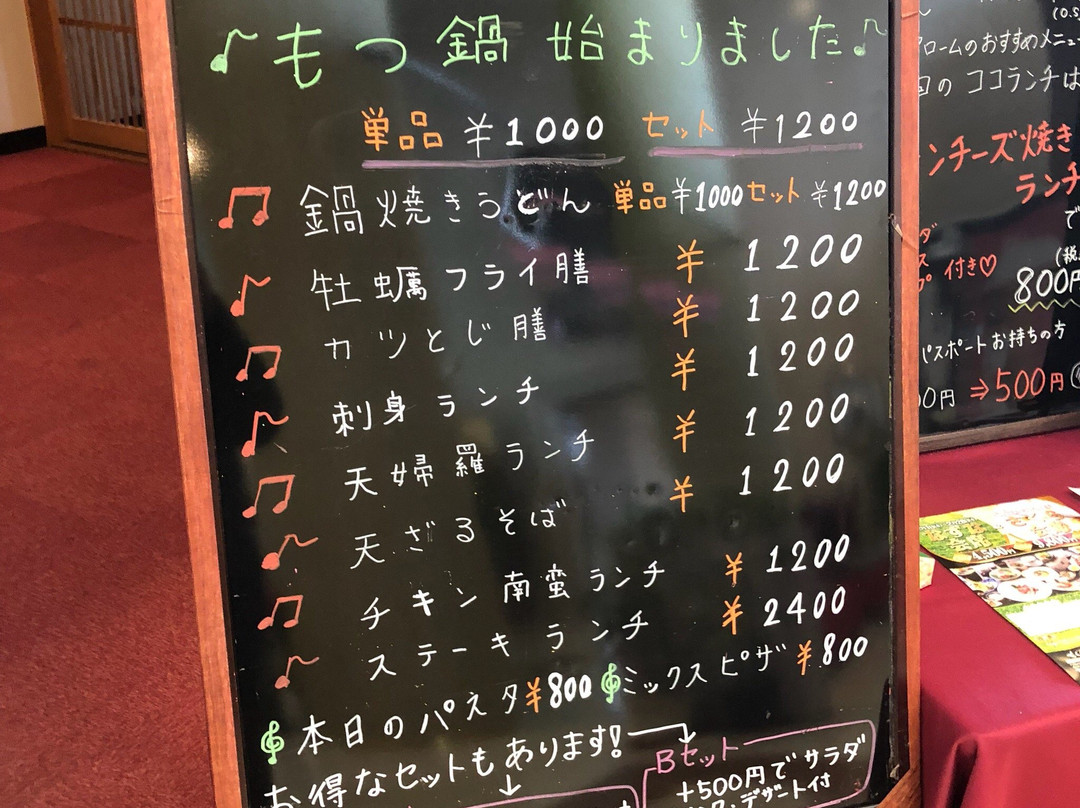 もつ鍋 始まりました
単品 ¥1000 セット ¥1200
鍋焼きうどん 単品¥1000 セット ¥1200
牡蠣フライ膳 ¥1200
カツとじ膳 ¥1200
刺身ランチ ¥1200
天婦羅ランチ ¥1200
天ざるそば ¥1200
チキン南蛮ランチ ¥1200
ステーキランチ ¥2400
本日のパスタ¥800 ミックスピザ¥800
お得なセットもあります!
Bセット
+500円でサラダ
デザート付
(0.5
ロームのおすすめメニュー
のココランチは
ンチーズ焼き
ランチ
で
(税
付き♡
800円
パスポートお持ちの方
0円 ⇒500円
4,500円